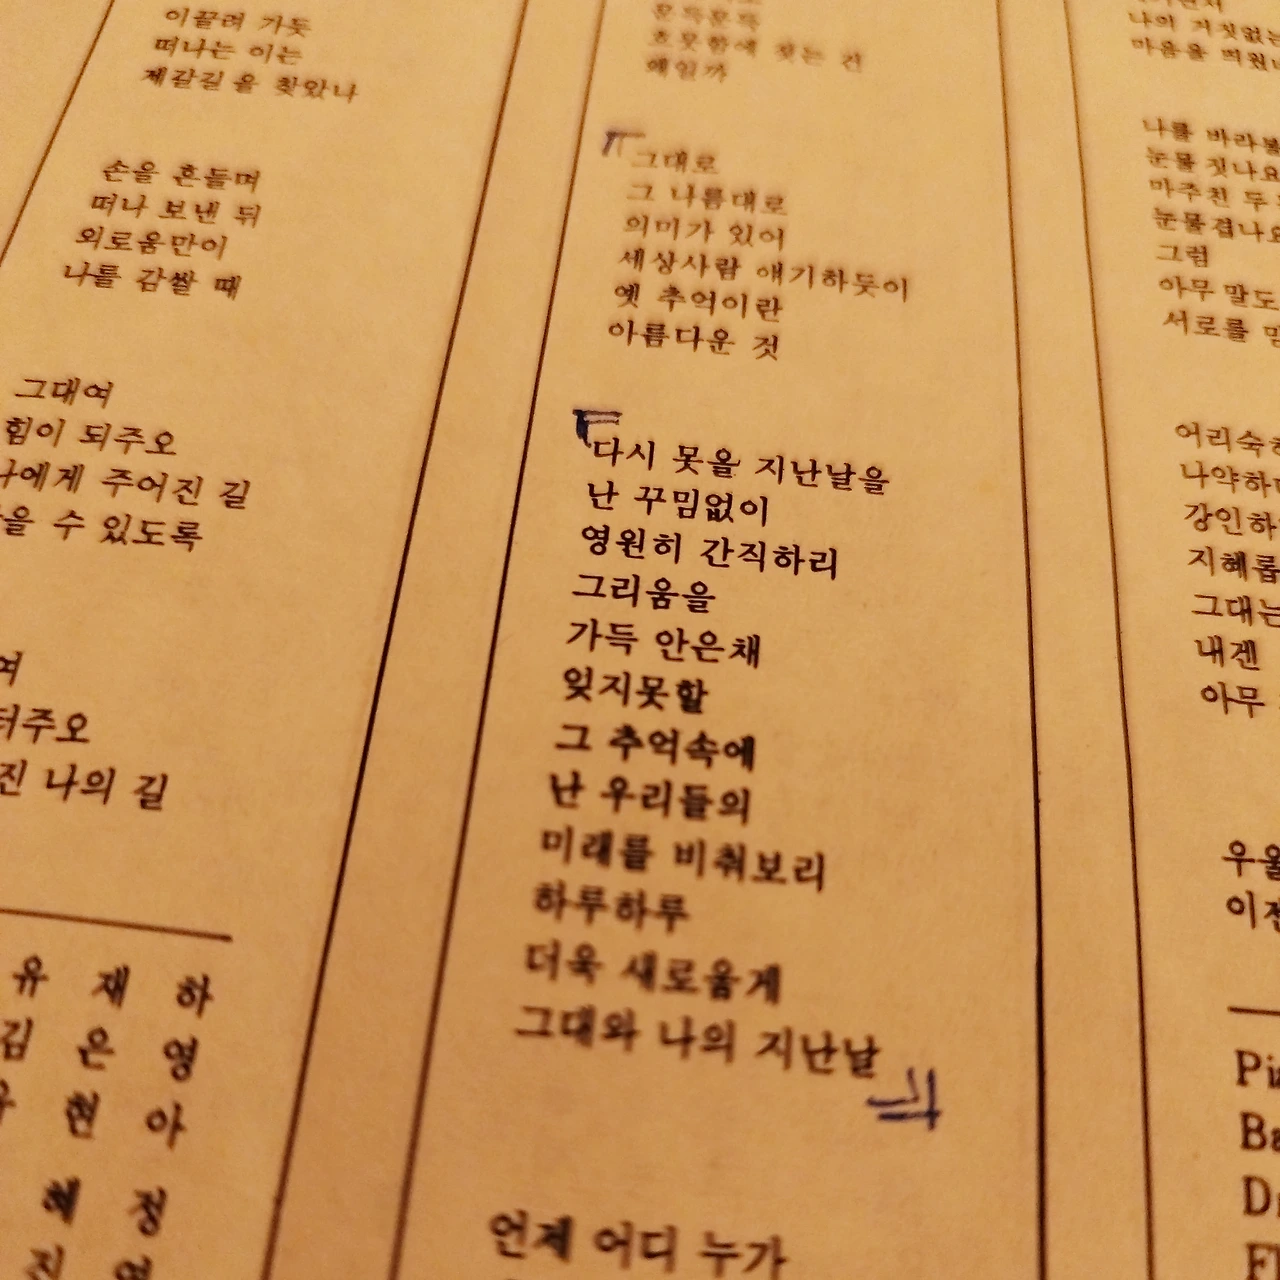 이끌려 가듯
떠나는 이는
제갈길을 찾았나
손을 흔들며
떠나 보낸 뒤
외로움만이
나를 감쌀 때
그대여
힘이 되주오
나에게 주어진 길
찾을 수 있도록
여
터주오
진 나의 길
유 재 하
김 은 영
현 아
혜 정
진 영
문득문득
흐뭇함에 젖는 건
왜일까
그대로
그 나름대로
의미가 있어
세상사람 얘기하듯이
옛 추억이란
아름다운 것
다시 못올 지난날을
난 꾸밈없이
영원히 간직하리
그리움을
가득 안은채
잊지못할
그 추억속에
난 우리들의
미래를 비춰보리
하루하루
더욱 새로웁게
그대와 나의 지난날
언제 어디 누가
나의 거짓없는
마음을 띄웠네
나를 바라볼
눈물 짓나요
마주친 두
눈물겹나요
그럼
아무 말도
서로를 믿
어리숙하
나약하
강인하
지혜롭
그대는
내겐
아무
우울
이젠